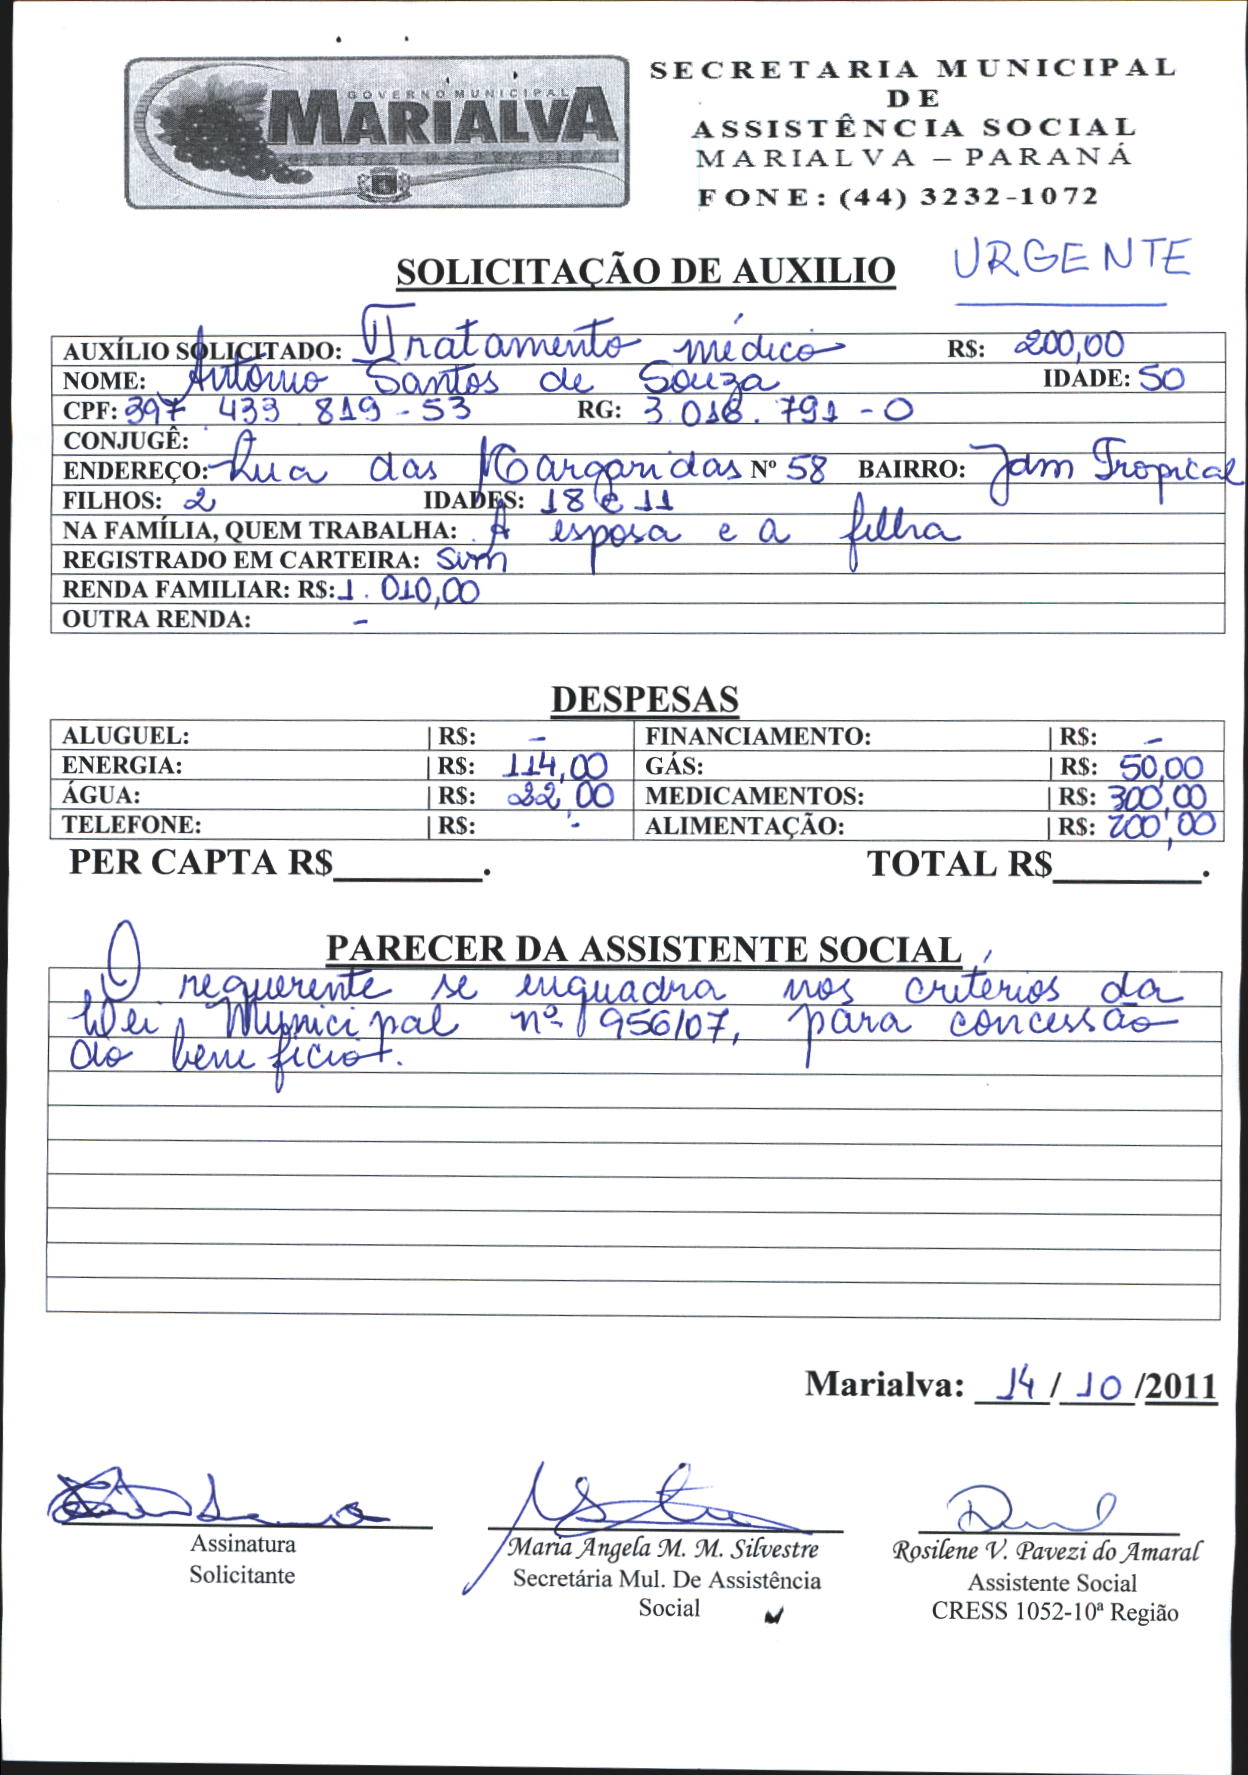 GOVERNO MUNICIPAL
MARIALVA
SECRETARIA MUNICIPAL
DE
ASSISTÊNCIA SOCIAL
MARIALVA – PARANÁ
FONE: (44) 3232-1072
SOLICITAÇÃO DE AUXILIO URGENTE
AUXÍLIO SOLICITADO: Tratamento médico R$: 200,00
NOME: Antonio Santos de Souza IDADE: 50
CPF: 397 433 819-53 RG: 3.018.791-0
CONJUGÊ:
ENDEREÇO: Rua das Margaridas Nº 58 BAIRRO: Jdm Tropical
FILHOS: 2 IDADES: 18 e 11
NA FAMÍLIA, QUEM TRABALHA: A esposa e a filha
REGISTRADO EM CARTEIRA: sim
RENDA FAMILIAR: R$: 1.010,00
OUTRA RENDA: -
DESPESAS
ALUGUEL: | R$: - FINANCIAMENTO: | R$: -
ENERGIA: | R$: 114,00 GÁS: | R$: 50,00
ÁGUA: | R$: 22,00 MEDICAMENTOS: | R$: 300,00
TELEFONE: | R$: - ALIMENTAÇÃO: | R$: 200,00
PER CAPTA R$________. TOTAL R$________.
PARECER DA ASSISTENTE SOCIAL
O requerente se enquadra nos critérios da
Lei Municipal nº 956/07, para concessão
do benefício.
Marialva: 14/10/2011
Assinatura
Solicitante
Maria Angela M. M. Silvestre
Secretária Mul. De Assistência
Social
Rosilene V. Pavezi do Amaral
Assistente Social
CRESS 1052-10ª Região